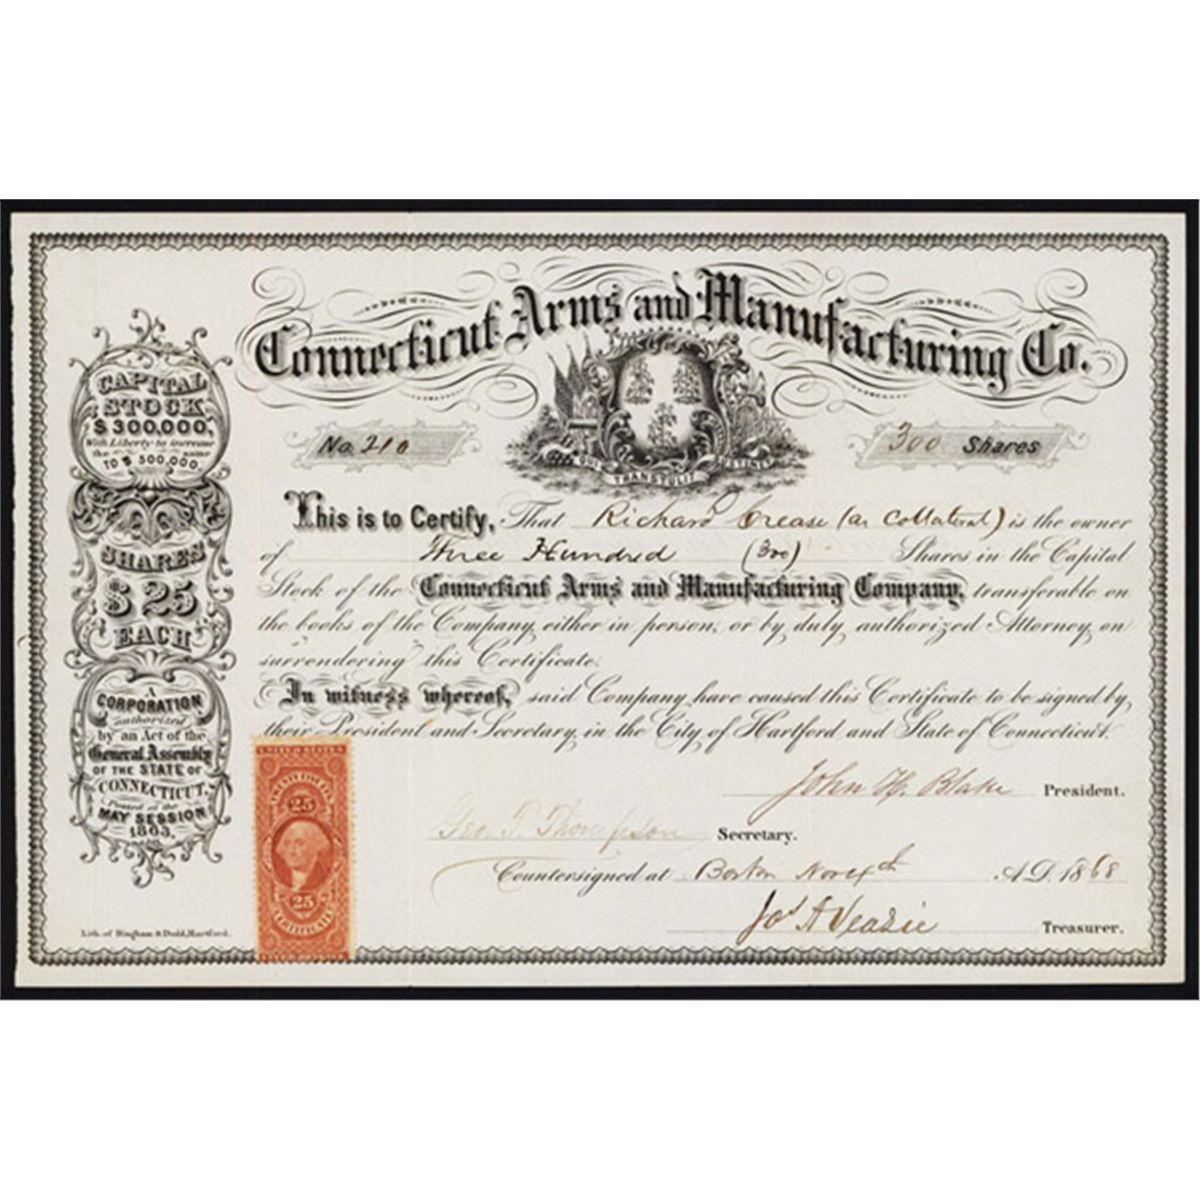 Connecticut Arms and Manufacturing Co.
No. 210
300 Shares
QUI TRANSTULIT SUSTINET
CAPITAL
STOCK
$300,000,
With Liberty to increase
the same
TO $500,000.
SHARES
$25
EACH
A
CORPORATION
authorized
by an Act of the
General Assembly
OF THE STATE OF
CONNECTICUT,
Passed at the
MAY SESSION
1863.
This is to Certify, That Richard Crease (as Collateral) is the owner
of Three Hundred (300) Shares in the Capital
Stock of the Connecticut Arms and Manufacturing Company, transferable on
the books of the Company, either in person, or by duly authorized Attorney, on
surrendering this Certificate.
In witness whereof, said Company have caused this Certificate to be signed by
their President and Secretary, in the City of Hartford and State of Connecticut.
John H. Blake President.
Geo. T. Thompson Secretary.
Countersigned at Boston Nov 4th A.D. 1868
Jos A Veazie Treasurer.
UNITED STATES
25
25
CERTIFICATE
Lith. of Bingham & Dodd, Hartford.